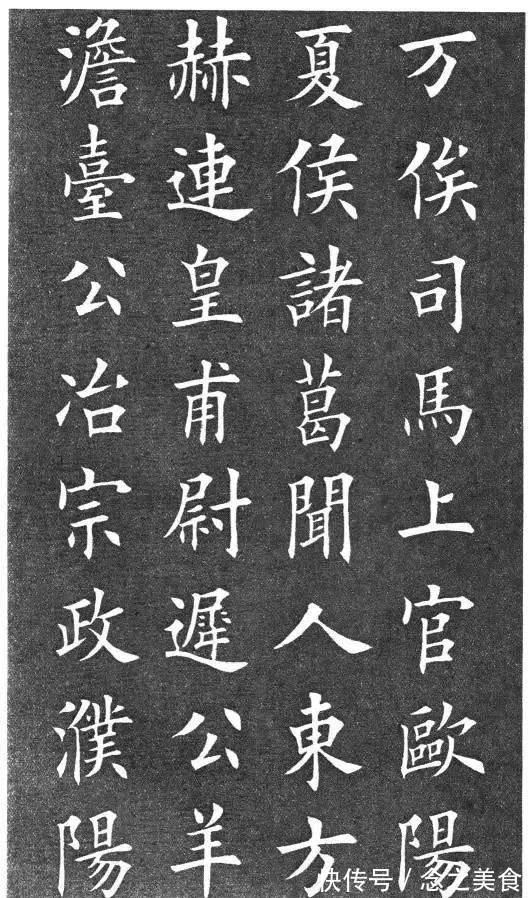 万俟司馬上官歐陽
夏侯諸葛聞人東方
赫連皇甫尉遲公羊
澹臺公冶宗政濮陽
快传号/念之美食